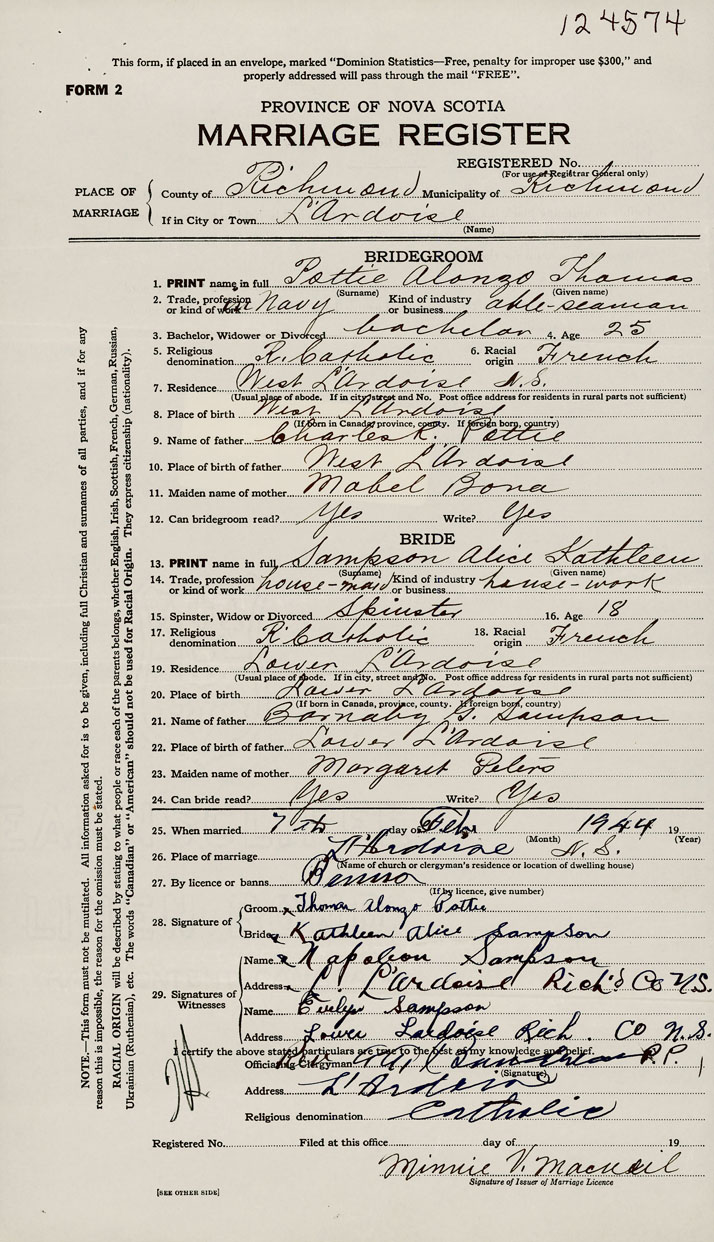 124574
This form, if placed in an envelope, marked "Dominion Statistics—Free, penalty for improper use $300," and
properly addressed will pass through the mail "FREE".
FORM 2
PROVINCE OF NOVA SCOTIA
MARRIAGE REGISTER
REGISTERED No.
(For use of Registrar General only)
PLACE OF MARRIAGE { County of Richmond Municipality of Richmond
If in City or Town L'Ardoise
(Name)
BRIDEGROOM
1. PRINT name in full Pottie Alonzo Thomas
(Surname) (Given name)
2. Trade, profession or kind of work in Navy Kind of industry or business able-seaman
3. Bachelor, Widower or Divorced bachelor 4. Age 25
5. Religious denomination R. Catholic 6. Racial origin French
7. Residence West L'Ardoise N.S.
(Usual place of abode. If in city street and No. Post office address for residents in rural parts not sufficient)
8. Place of birth West L'Ardoise
(If born in Canada, province, county. If foreign born, country)
9. Name of father Charles R. Pottie
10. Place of birth of father West L'Ardoise
11. Maiden name of mother Mabel Bona
12. Can bridegroom read? Yes Write? Yes
BRIDE
13. PRINT name in full Sampson Alice Kathleen
(Surname) (Given name)
14. Trade, profession or kind of work house-maid Kind of industry or business house-work
15. Spinster, Widow or Divorced Spinster 16. Age 18
17. Religious denomination R. Catholic 18. Racial origin French
19. Residence Lower L'Ardoise
(Usual place of abode. If in city, street and No. Post office address for residents in rural parts not sufficient)
20. Place of birth Lower L'Ardoise
(If born in Canada, province, county. If foreign born, country)
21. Name of father Barnaby G. Sampson
22. Place of birth of father Lower L'Ardoise
23. Maiden name of mother Margaret Peters
24. Can bride read? Yes Write? Yes
25. When married 7th day of Feb. 1944 19
(Month) (Year)
26. Place of marriage L'Ardoise N.S.
(Name of church or clergyman's residence or location of dwelling house)
27. By licence or banns
(If by licence, give number)
28. Signature of { Groom x Thomas Alonzo Pottie
Bride x Kathleen Alice Sampson
29. Signatures of Witnesses { Name x Napoleon Sampson
Address L. L'Ardoise Rich'd Co N.S.
Name Evelyn Sampson
Address Lower Lardoise Rich. CO N.S.
I certify the above stated particulars are true to the best of my knowledge and belief.
Officiating Clergyman P.P.
(Signature)
Address L'Ardoise
Religious denomination Catholic
Registered No. Filed at this office day of 19
Minnie V. MacNeil
Signature of Issuer of Marriage Licence
[SEE OTHER SIDE]
NOTE.—This form must not be mutilated. All information asked for is to be given, including full Christian and surnames of all parties, and if for any
reason this is impossible, the reason for the omission must be stated.
RACIAL ORIGIN will be described by stating to what people or race each of the parents belongs, whether English, Irish, Scottish, French, German, Russian,
Ukrainian (Ruthenian), etc. The words "Canadian" or "American" should not be used for Racial Origin. They express citizenship (nationality).